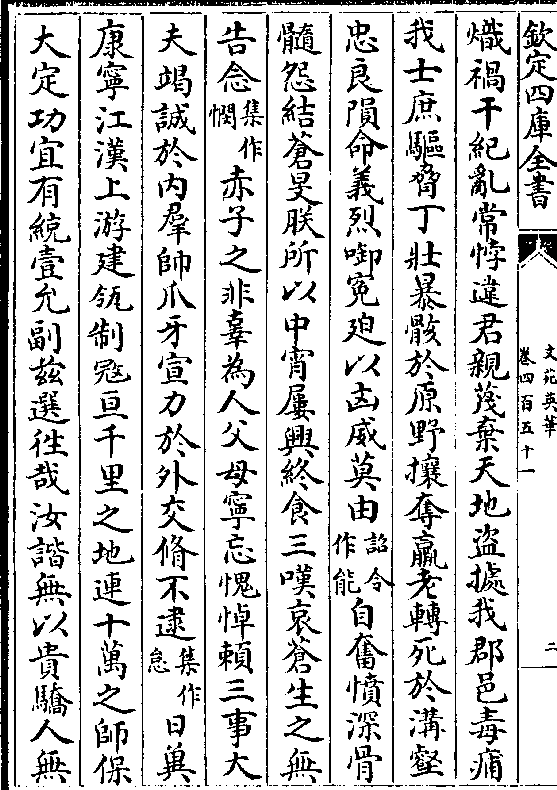 欽定四庫全書
文苑英華
卷四百五十一
二
熾禍干紀亂常悖違君親蔑棄天地盜據我郡邑毒痛
我士庶驅脅丁壯暴骸於原野攘奪羸老轉死於溝壑
忠良隕命義烈啣寃廹以凶威莫由詔令作能自奮憤深骨
髓怨結蒼旻朕所以中宵屢興終食三嘆哀蒼生之無
告念集作憫赤子之非辜為人父母寧忘愧悼頼三事大
夫竭誠於内羣帥爪牙宣力於外交脩不逮集作怠日冀
康寧江漢上游建瓴制寇亘千里之地連十萬之師保
大定功宜有統壹允副兹選徃哉汝諧無以貴驕人無